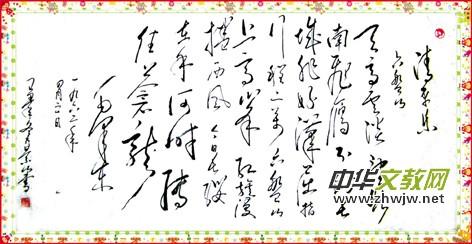 清平乐
六盘山
天高云淡望断
南飞雁不到长
城非好汉屈指
行程二万六盘山
上高峰红旗漫
捲西风今日长缨
在手何时缚
住苍龙
毛泽东
一九六二年
中华文教网
www.zhwjw.net